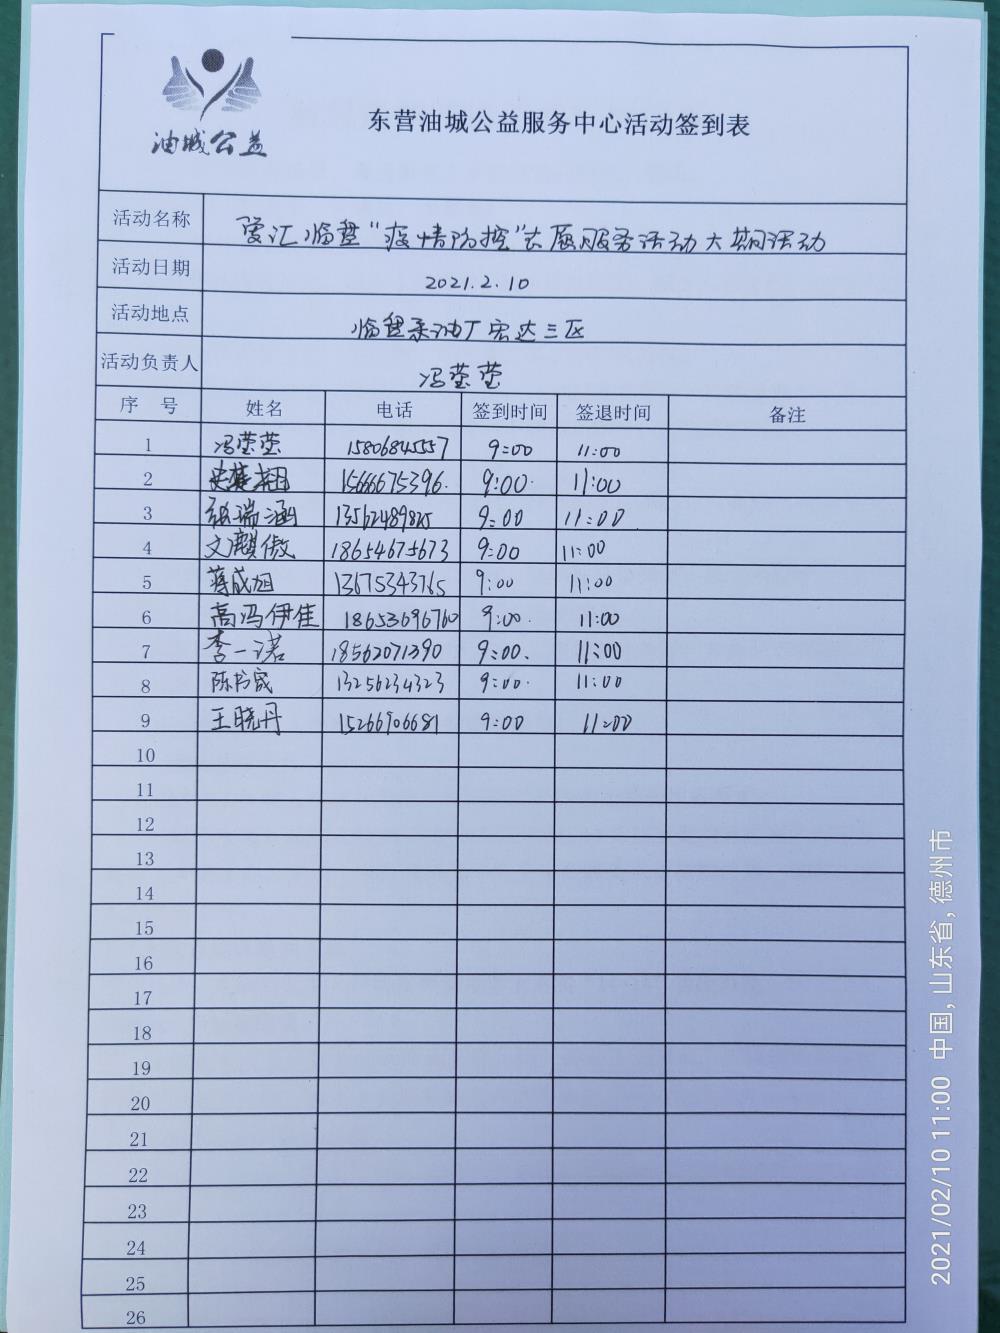 油城公益
东营油城公益服务中心活动签到表
活动名称 爱汇临盘"疫情防控"志愿服务活动大期活动
活动日期 2021.2.10
活动地点 临盘采油厂宏达三区
活动负责人 冯莹莹
序 号 姓名 电话 签到时间 签退时间 备注
1 冯莹莹 15806845557 9:00 11:00
2 15666675396 9:00 11:00
3 张瑞涵 13562489825 9:00 11:00
4 文麒傲 18654675673 9:00 11:00
5 蒋成旭 13675343765 9:00 11:00
6 高冯伊佳 18653696760 9:00 11:00
7 李一诺 18562071390 9:00 11:00
8 陈书宬 13256234323 9:00 11:00
9 王晓丹 15266906681 9:00 11:00
10
11
12
13
14
15
16
17
18
19
20
21
22
23
24
25
26
2021/02/10 11:00 中国, 山东省, 德州市